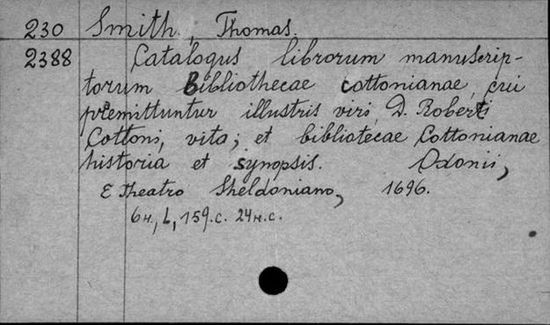 230 Smith, Thomas.
2388 Catalogus librorum manuscrip-
torum Bibliothecae Cottonianae, cui
praemittuntur illustris viri, D. Roberti
Cottoni, vita; et bibliatecae Cottonianae
historia et synopsis. Oxonii,
E theatro Sheldoniano, 1696.
6н., L, 159.c. 24н.c.